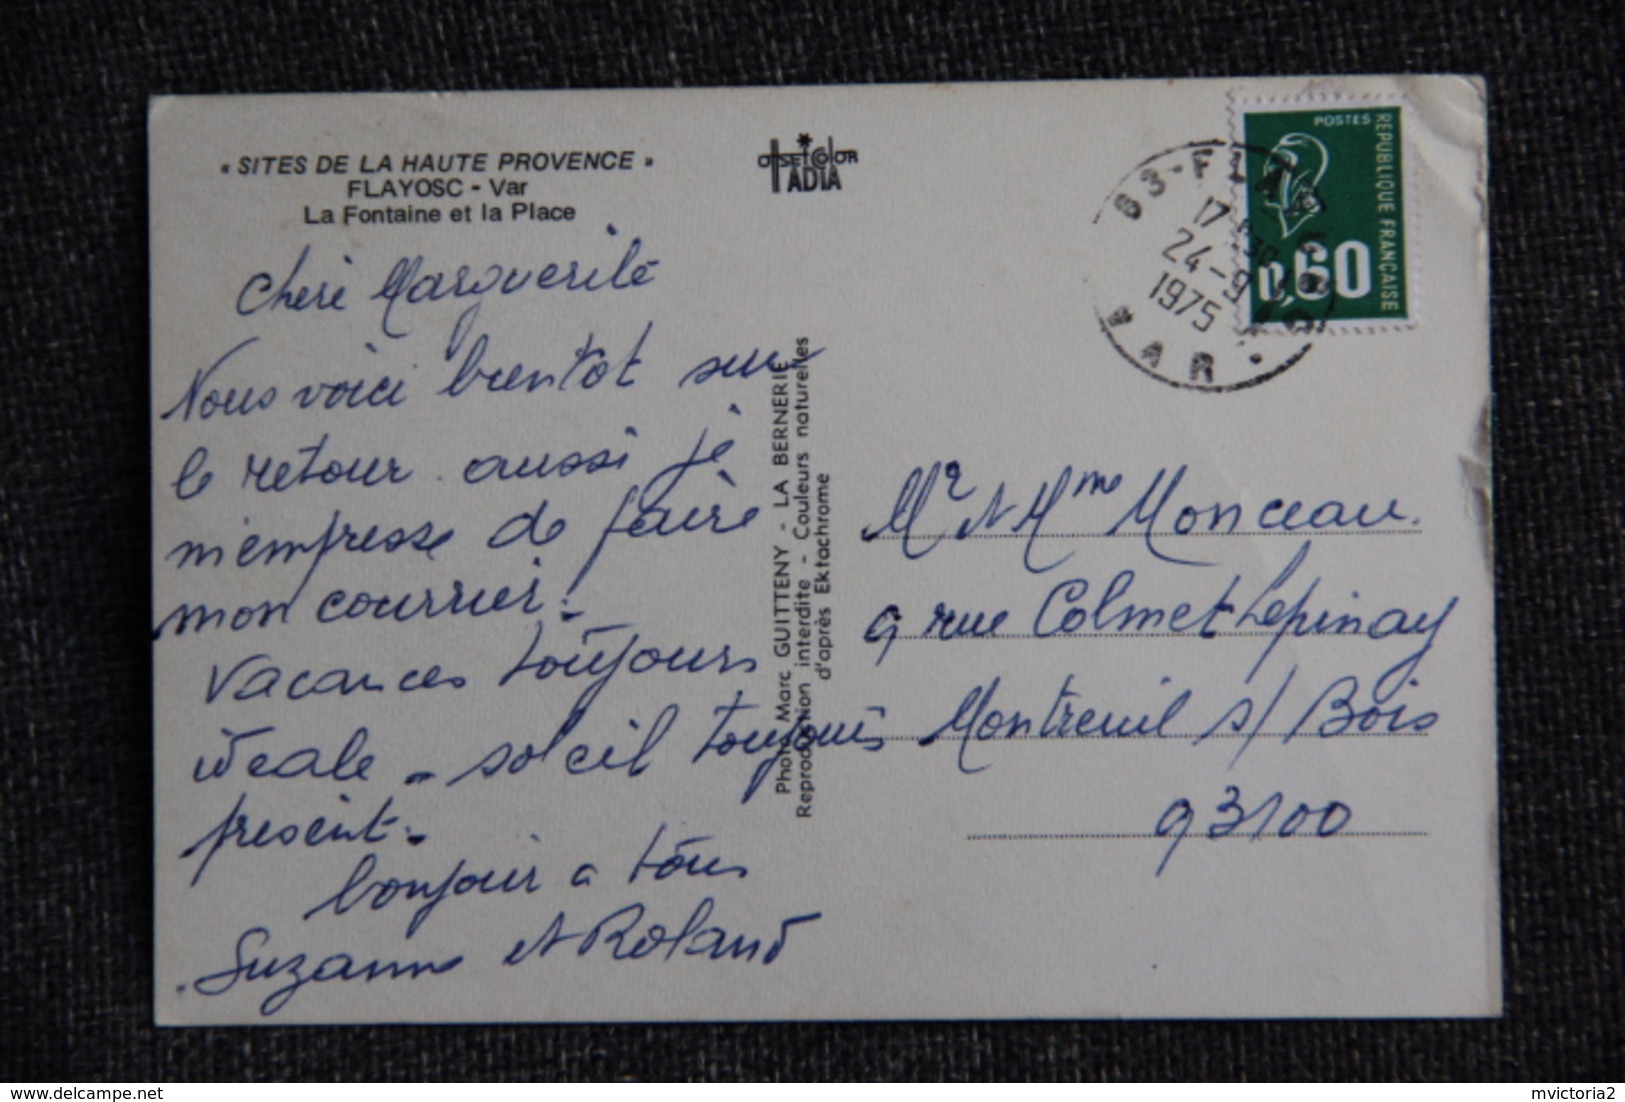 « SITES DE LA HAUTE PROVENCE »
FLAYOSC - Var
La Fontaine et la Place
OFFSET COLOR
IADIA
POSTES
REPUBLIQUE FRANÇAISE
0,60
83-FLAYOSC
17H30
24-9
1975
VAR
Cheré Marguerite
Nous voici bientôt sur
le retour. aussi je
m'empresse de faire
mon courrier.
Vacances toujours
idéale - soleil toujours
présent.
bonjour a tous
Suzanne et Roland
Photo Marc GUITTENY - LA BERNERIE
Reproduction interdite - Couleurs naturelles
d'après Ektachrome
Mr et Mme Monceau.
9 rue Colmet Lepinay
Montreuil s/ Bois
93100
delcampe.net
mvictoria2